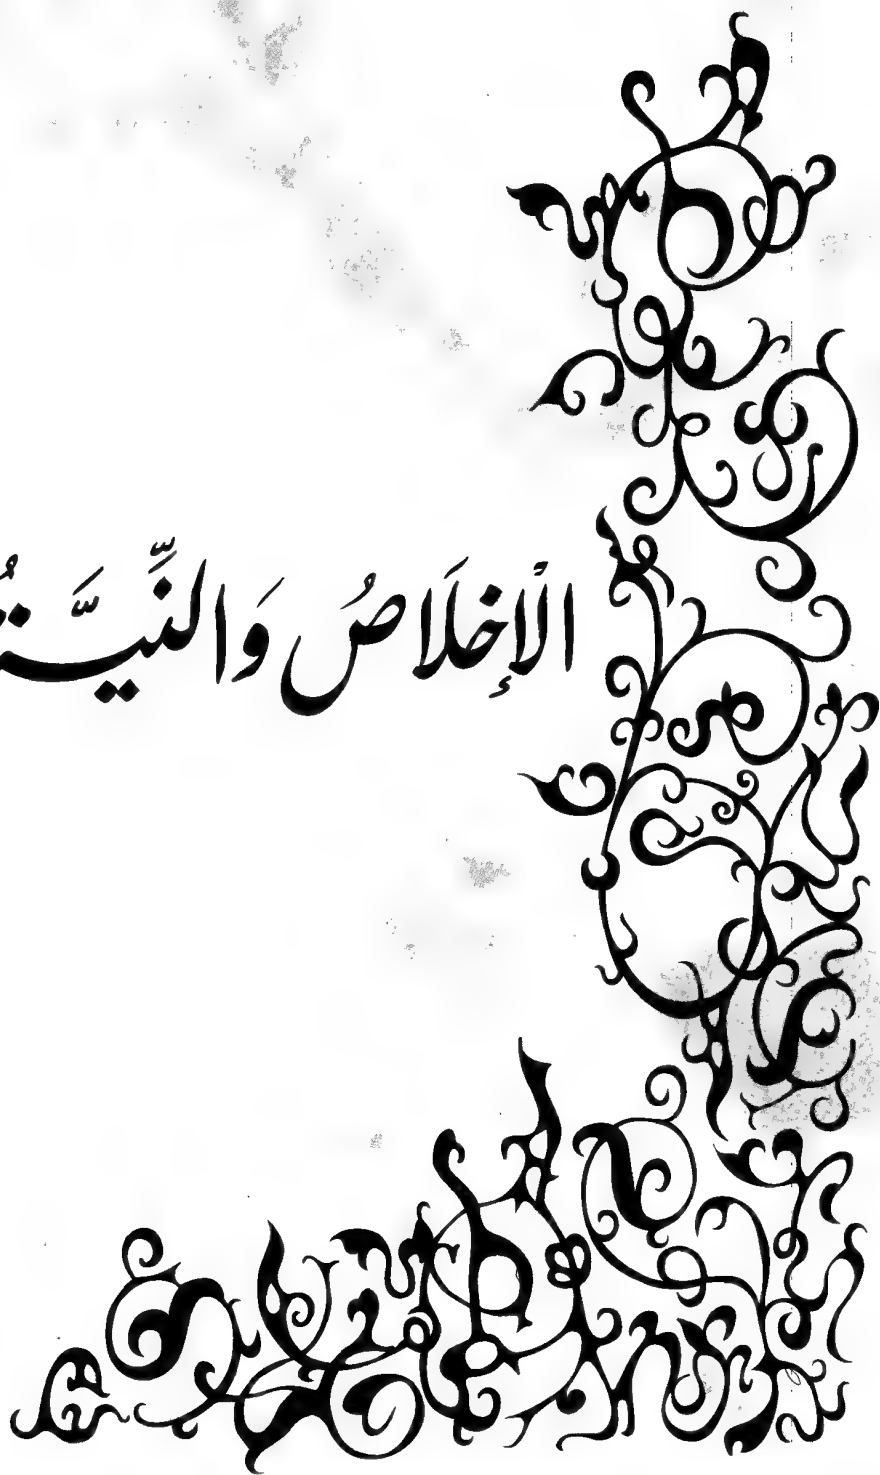 الْإِخْلَاصُ وَالنِّيَّةُ